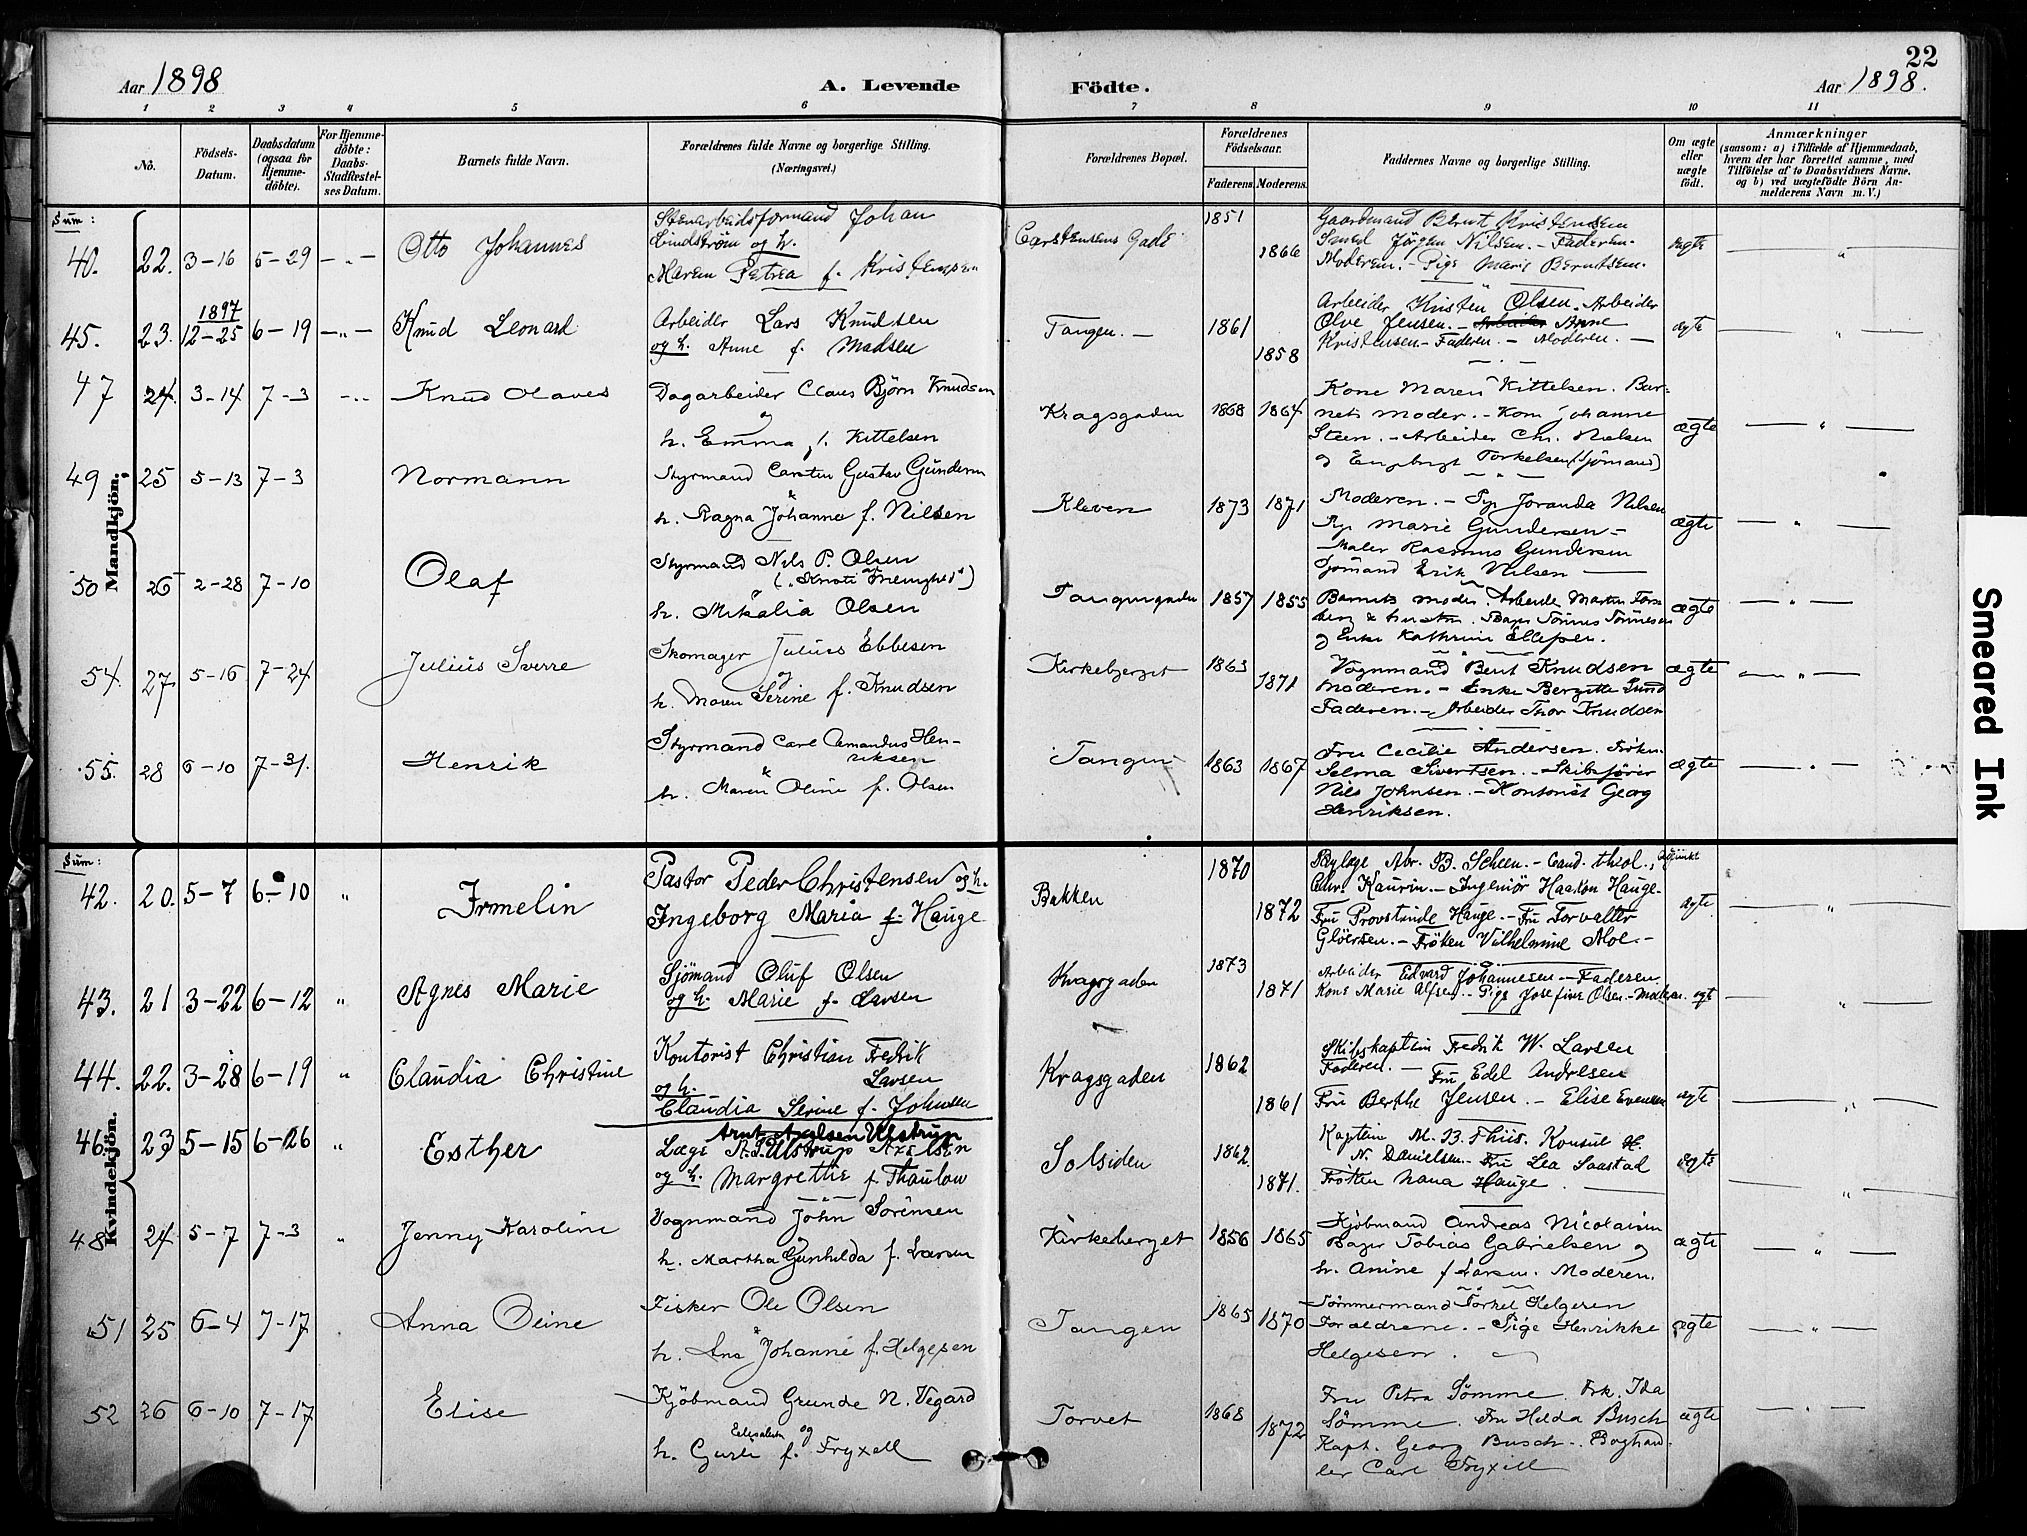 22
Aar 1898
A. Levende
Födte.
Aar 1898.
1 2 3 4 5 6 7 8 9 10 11
No.
Födsels-Datum.
Daabsdatum (ogsaa for Hjemme-döbte).
For Hjemme-döbte: Daabs-Stadfæstel-ses Datum.
Barnets fulde Navn.
Forældrenes fulde Navne og borgerlige Stilling.
(Næringsvei.)
Forældrenes Bopæl.
Forældrenes Födselsaar.
Faderens. Moderens.
Faddernes Navne og borgerlige Stilling.
Om ægte eller uægte födt.
Anmærkninger
(saasom: a) i Tilfælde af Hjemmedaab, hvem der har forrettet samme, med Tilföielse af to Daabsvidners Navne. og b) ved uægtefödte Börn Anmelderens Navn m. V.)
Sum:
Mandkjön.
40. 22. 3-16 5-29 Otto Johannes
Stenarbeidsformand Johan
Lindström og h.
Maren Petrea f. Kristensen
Carstensens Gade 1851 1866
Gaardmand Bernt Kristensen
Smed Jörgen Nilsen. - Faderen.
Moderen. - Pige Marie Berntsen.
ægte
45. 23. 1897 12-25 6-19 Knud Leonard
Arbeider Lars Knudsen
og h. Anne f. Madsen
Tangen. 1861 1858
Arbeider Kristen Olsen. Arbeider
Olve Jensen. - Arbeider Anne
Kristensen - Faderen. - Moderen.
ægte
47 24. 3-14 7-3 Knud Olaves
Dagarbeider Claus Björn Knudsen
og
h. Emma f. Kittelsen
Kragsgaden 1868 1864
Kone Maren Kittelsen. Bar-
nets moder. - Kone Johanne
Steen. - Arbeider Chr. Nielsen
og Engebrgt Torkelsen (Sjömand)
ægte
49 25 5-13 7-3 Normann
Styrmand Carsten Gustav Gundersen
h. Ragna Johanne f. Nilsen
Kleven 1873 1871
Moderen. - Pige Joranda Nilsen
Pige Marie Gundersen -
Maler Rasmus Gundersen
Sjömand Erik Nilsen
ægte
50 26 2-28 7-10 Olaf
Styrmand Nils P. Olsen
og
h. Mikalia Olsen
Tangengaden 1857 1855
Barnets moder. Arbeider Martin Tors
berg & hustru. Bager Tönnes Tönnesen
og Enke Kathrine Ellefsen.
ægte
54. 27. 5-16 7-24 Julius Sverre
Skomager Julius Ebbesen
og
h. Maren Serine f. Knudsen
Kirkebjerget 1863 1871
Vognmand Bent Knudsen
Moderen. - Enke Bergitte Lund
Faderen. - Arbeider Thor Knudsen
ægte
55. 28 6-10 7-31. Henrik
Styrmand Carl Amandus Hen-
riksen
h. Maren Oline f. Olsen
Tangen 1863 1867
Fru Cecilie Andersen. Frökn.
Selma Sivertsen. - Skibsförer
Nils Johnsen. - Kontorist Georg
Henriksen.
ægte
Sum:
Kvindekjön.
42. 20. 5-7 6-10 Irmelin
Pastor Peder Christensen og h.
Ingeborg Maria f. Hauge
Bakken 1870 1872
Bylæge Abr. B. Scheen. - Cand. theol., Adjunkt
Chr. Kaurin. - Ingeniör Haakon Hauge.
Fru Provstinde Hauge. - Fru Forvalter
Glöersen. - Fröken Vilhelmine Moe. -
ægte
43. 21 3-22 6-12 Agnes Marie
Sjömand Oluf Olsen
og h. Marie f. Larsen
Kragsgaden 1873 1871
Arbeider Edvard Johannesen - Faderen.
Kone Marie Alfsen. - Pige Josefine Olsen. - Moderen.
ægte
44. 22. 3-28 6-19 Claudia Christine
Kontorist Christian Fredrik
og h. Larsen
Claudia Serine f. Johnsen
Kragsgaden 1862 1861
Skibskaptein Fredrik W. Larsen
Faderen. - Fru Edel Andresen
Fru Berthe Jensen. - Elise Evensen
ægte
46. 23 5-15 6-26 Esther
Arnt Axelsen Ulstrup
Læge A. J. Ulstrup Axelsen
og h. Margrethe f. Thaulow
Solsiden 1862. 1871.
Kaptein M. B. Thiis. Konsul H.
N. Danielsen. - Fru Lea Saastad
Fröken Nana Hauge.
ægte
48. 24. 5-7 7-3 Jenny Karoline
Vognmand John Sörensen
h. Martha Gunhilda f. Larsen
Kirkeberget 1856 1865
Kjöbmand Andreas Nicolaisen
Bager Tobias Gabrielsen og
h. Anine f. Larsen. Moderen.
ægte
51 25 6-4 7-17 Anna Oline
Fisker Ole Olsen
&
h. Ane Johanne f. Helgesen
Tangen 1865 1870
Tömmermand Torkel Helgesen
Forældrene. - Pige Henrikke
Helgesen.
ægte
52 26 6-10 7-17 Elise
Kjöbmand Grunde N. Vegard
og
h. Gurli f. Fryxell
Torvet 1868 1872
Fru Petra Sömme. Frk. Ida
Sömme. Fru Hilda Busch
Kapt. Georg Busch. - Boghand-
ler Carl Fryxell
ægte
Smeared Ink